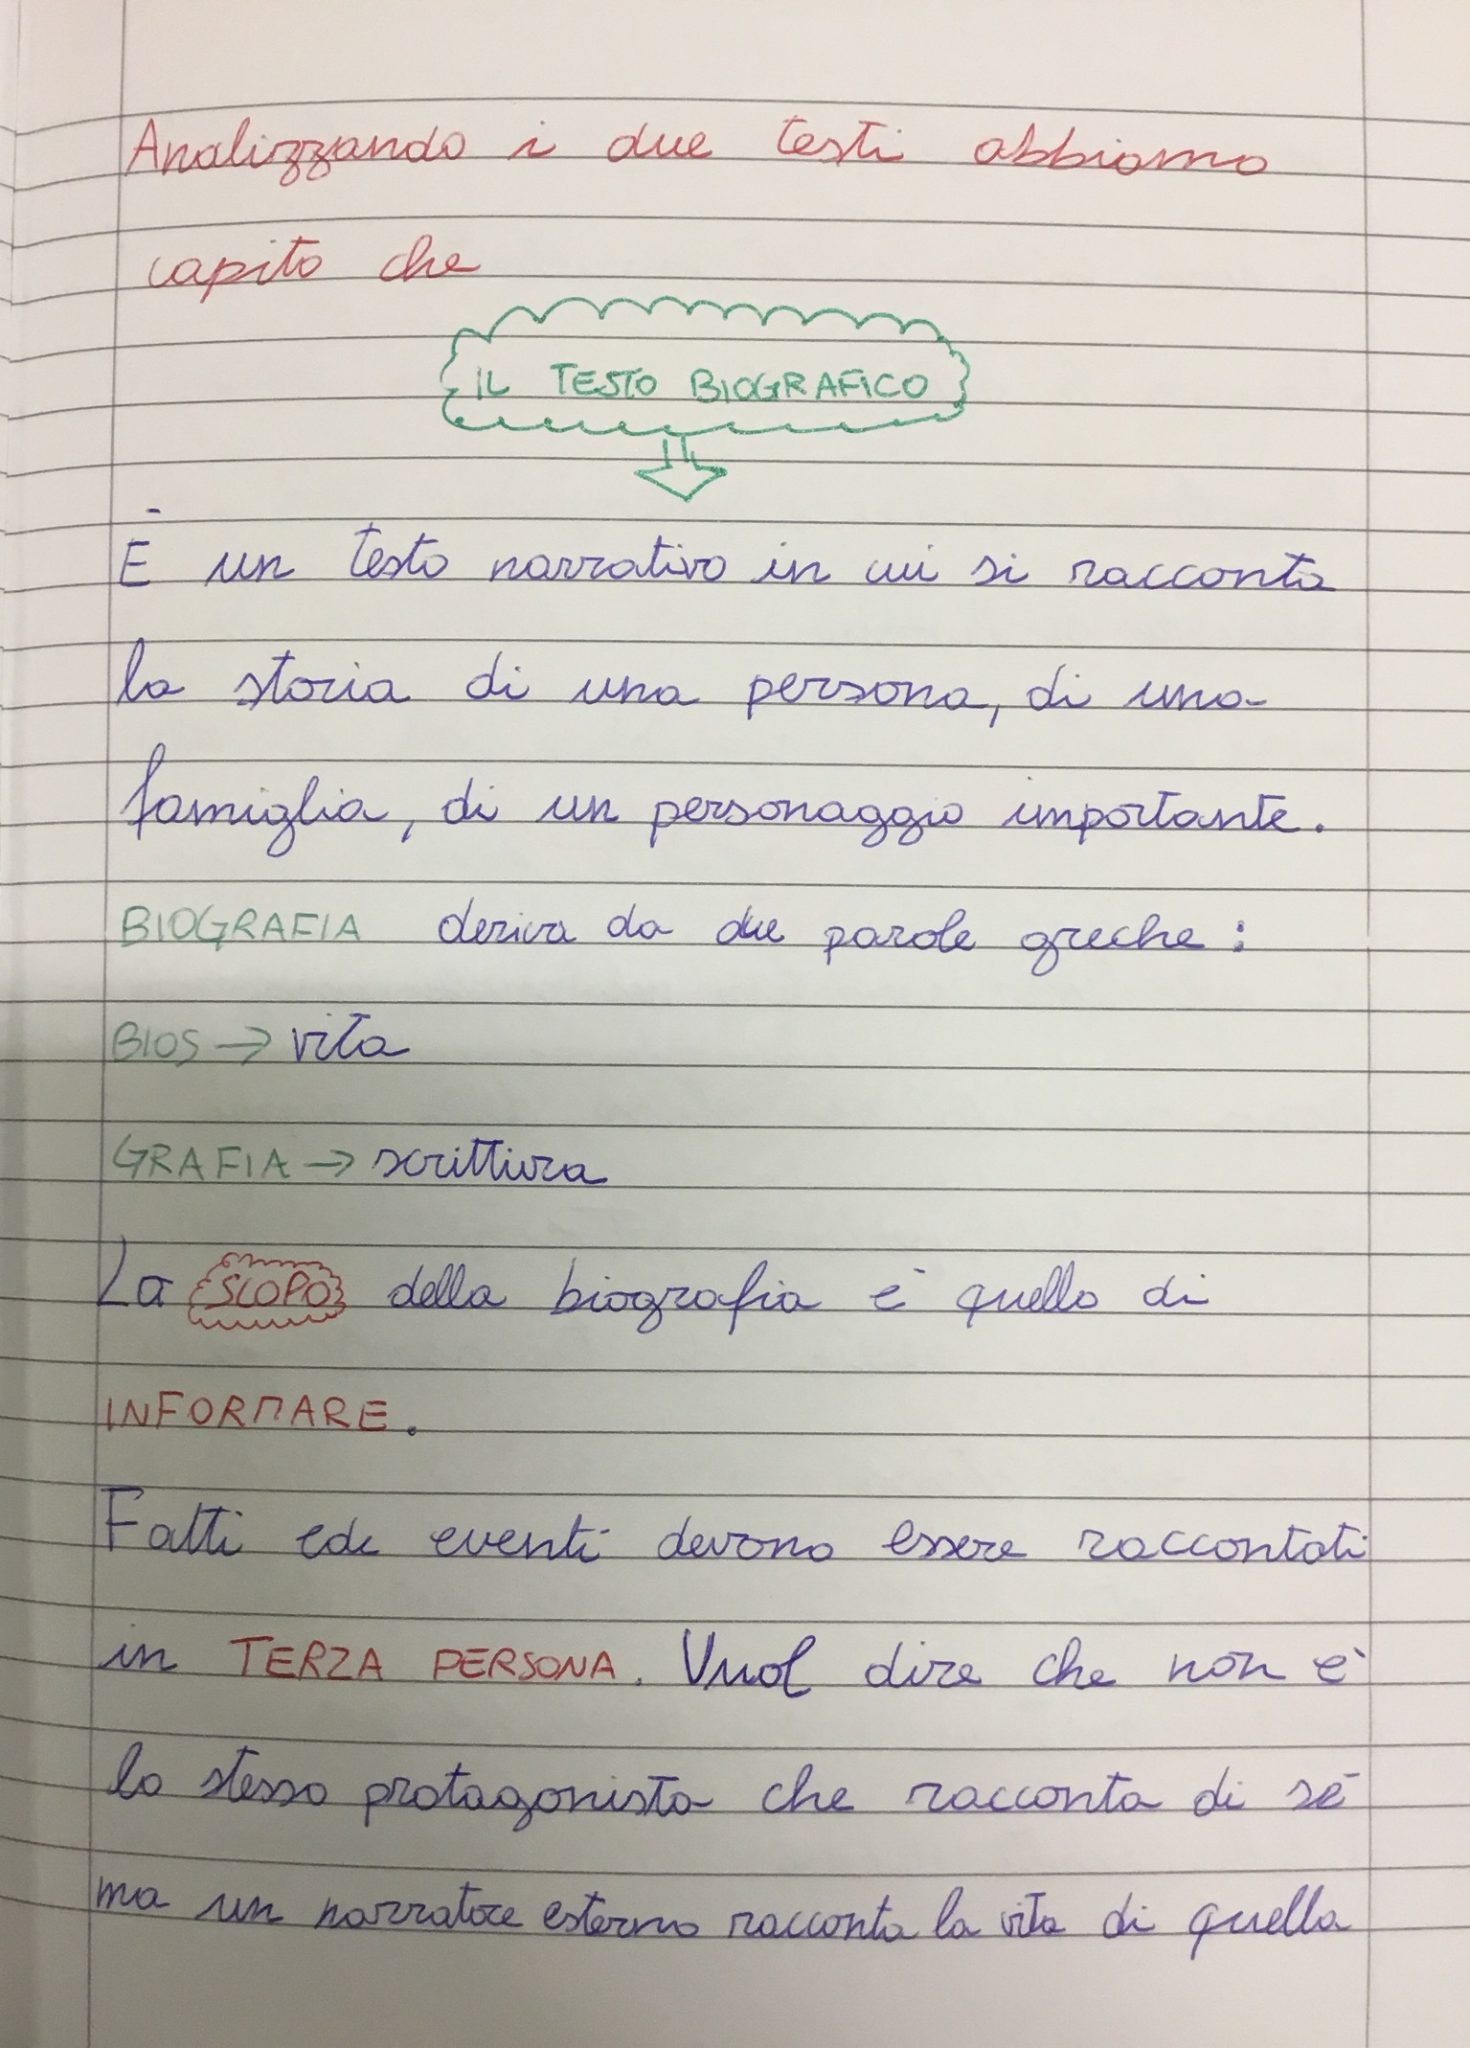 Analizzando i due testi abbiamo
capito che
IL TESTO BIOGRAFICO
È un testo narrativo in cui si racconta
la storia di una persona, di una
famiglia, di un personaggio importante.
BIOGRAFIA deriva da due parole greche:
BIOS → vita
GRAFIA → scrittura
La SCOPO della biografia è quello di
INFORMARE.
Fatti ed eventi devono essere raccontati
in TERZA PERSONA. Vuol dire che non è
lo stesso protagonista che racconta di sé
ma un narratore esterno racconta la vita di quella